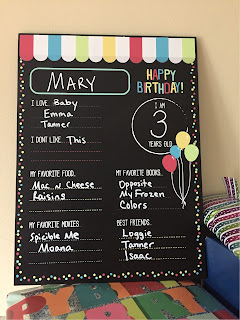 MARY
HAPPY
BIRTHDAY!
I LOVE: Baby
Emma
Tanner
I DON'T LIKE: This
I AM
3
YEARS OLD
MY FAVORITE FOOD:
Mac n Cheese
Raisins
MY FAVORITE BOOKS:
Opposite
My Frozen
Colors
MY FAVORITE MOVIES
Spicible Me
Moana
BEST FRIENDS:
Loggie
Tanner
Isaac